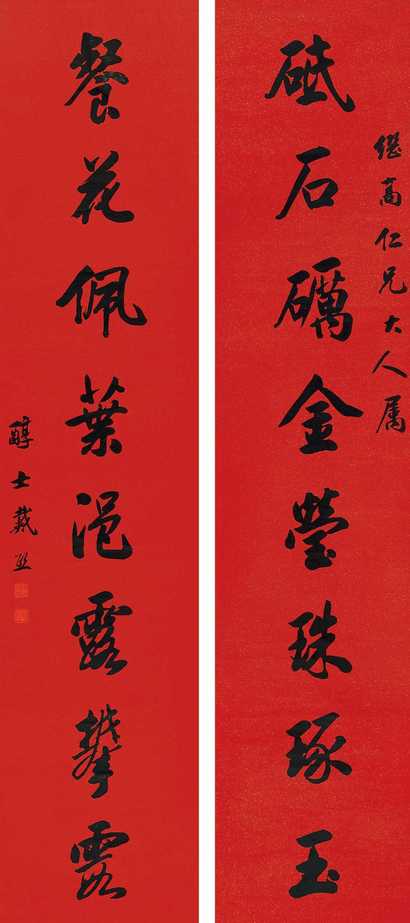 继高仁兄大人属
砥石礪金瑩珠琢玉
餐花佩葉浥露攀霞
醇士戴熙